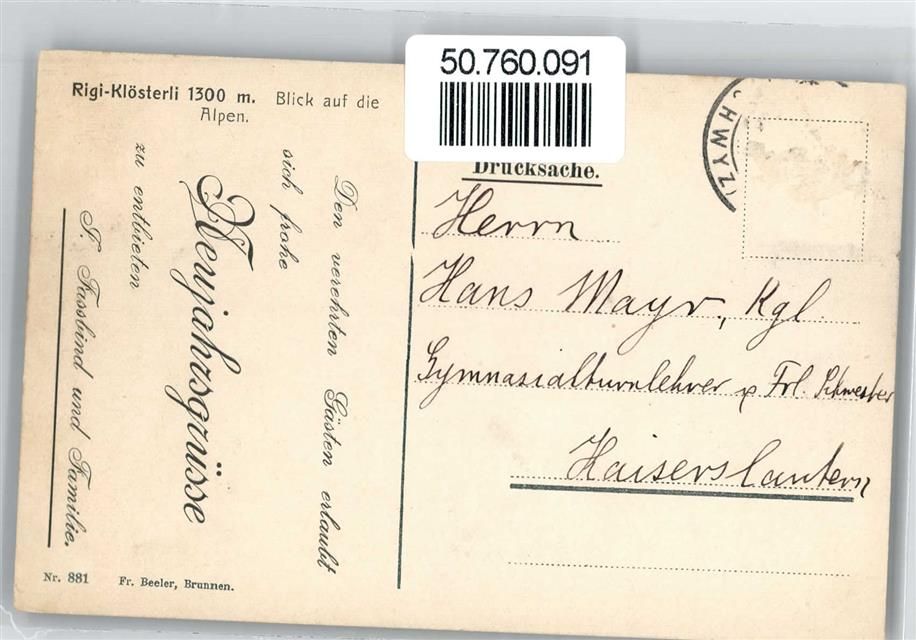 50.760.091
Rigi-Klösterli 1300 m. Blick auf die
Alpen.
Den verehrten Gästen erlaubt
sich frohe
Neujahrsgrüsse
zu entbieten
Fassbind und Familie.
Nr. 881 Fr. Beeler, Brunnen.
Drucksache.
Herrn
Hans Mayr, Kgl.
Gymnasialturnlehrer u Frl. Schwester
Kaiserslautern